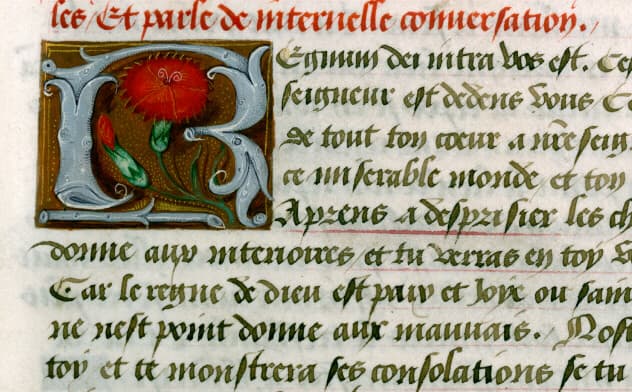 les, Et parle de internelle conuersation.
REgnum dei intra vos est. Ce
seigneur est dedens vous
de tout ton coeur a nre seig
ce miserable monde, et ton
Aprens a desprisier les ch
donne aux interioires et tu verras en toy
Car le regne de dieu est paix et Joye ou sain
ne nest point donne aux mauuais. Nos
toy et te monstrera ses consolations se tu